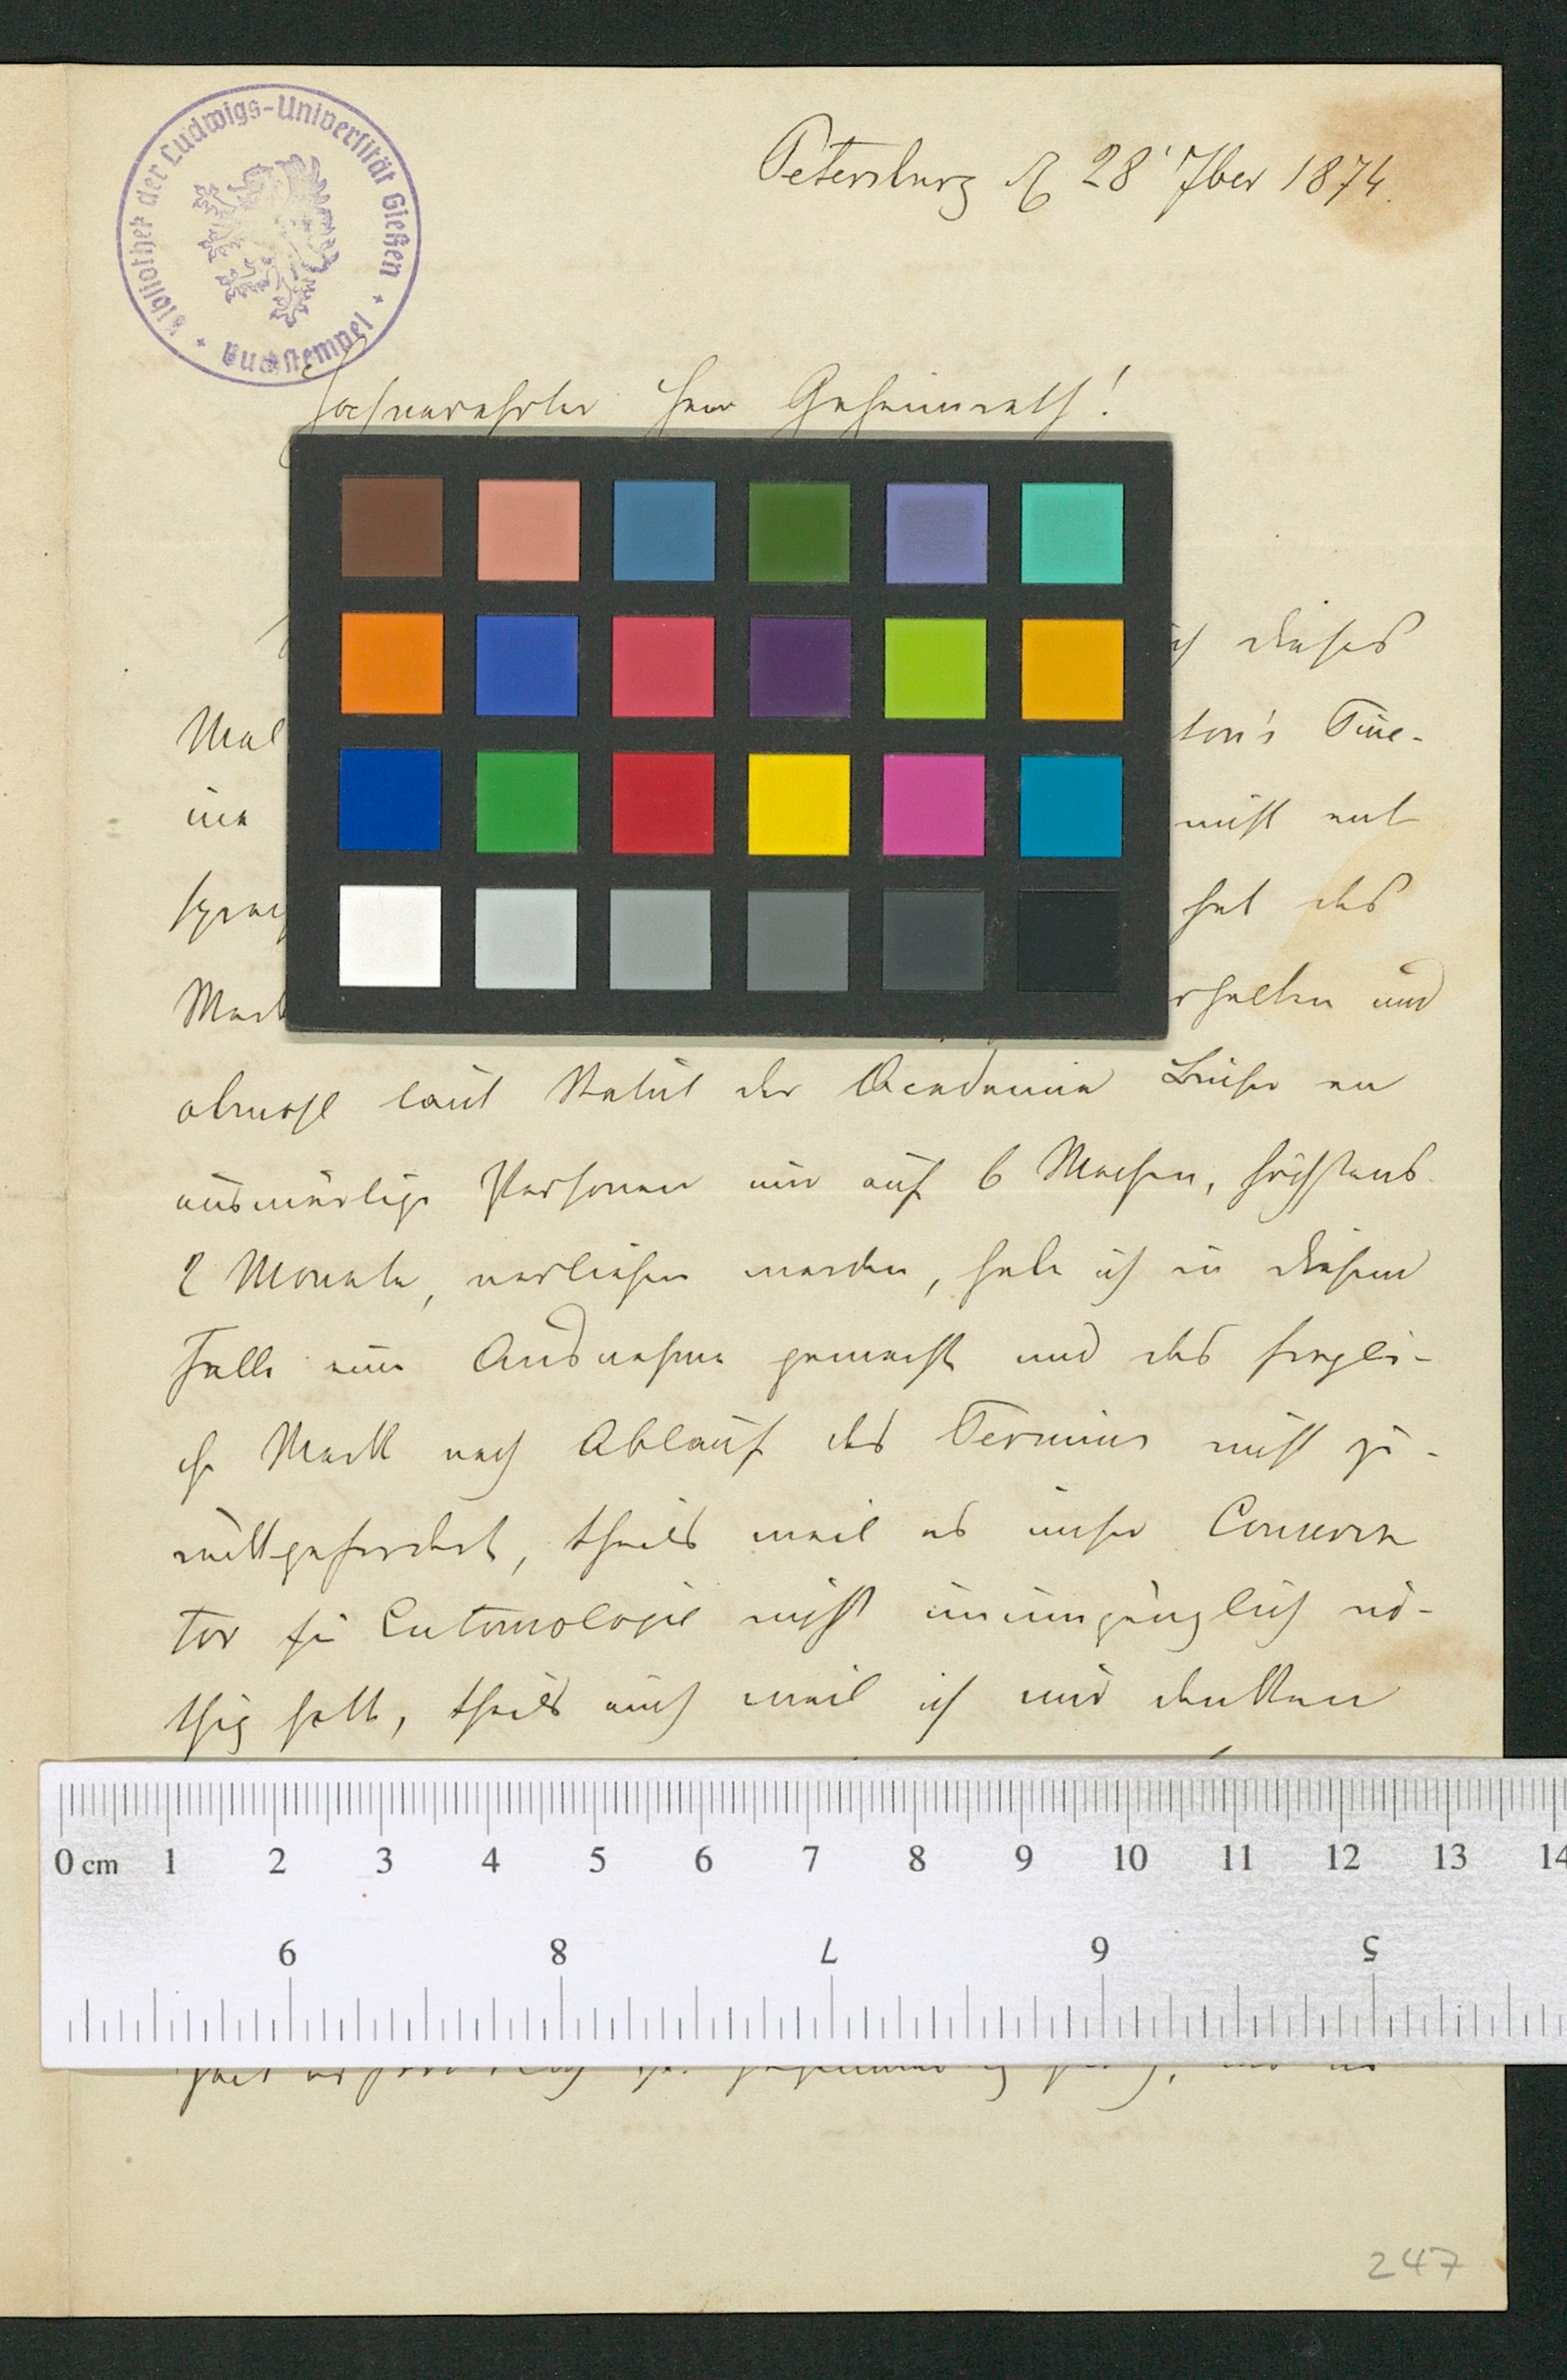 Bibliothek der Ludwigs-Universität Gießen
Buchstempel
Petersburg d 28' 7ber 1874.
Hochverehrter Herr Geheimrath!
ich dieses
Mal
ton's Tine-
ina
nicht ent
sprech
hat das
Werk
erhalten und
obwohl laut Statut der Academie Bücher an
auswärtige Personen nur auf 6 Wochen, höchstens
2 Monate, verliehen werden, habe ich in diesem
Falle eine Ausnahme gemacht und das fragli-
che Werk nach Ablauf des Termins nicht zu-
rückgefordert, theils weil es unser Conserva
tor für Entomologie nicht unumgänglich nö-
thig hatte, theils auch weil ich mir denken
0 cm 1 2 3 4 5 6 7 8 9 10 11 12 13 14
9 8 7 6 5
247